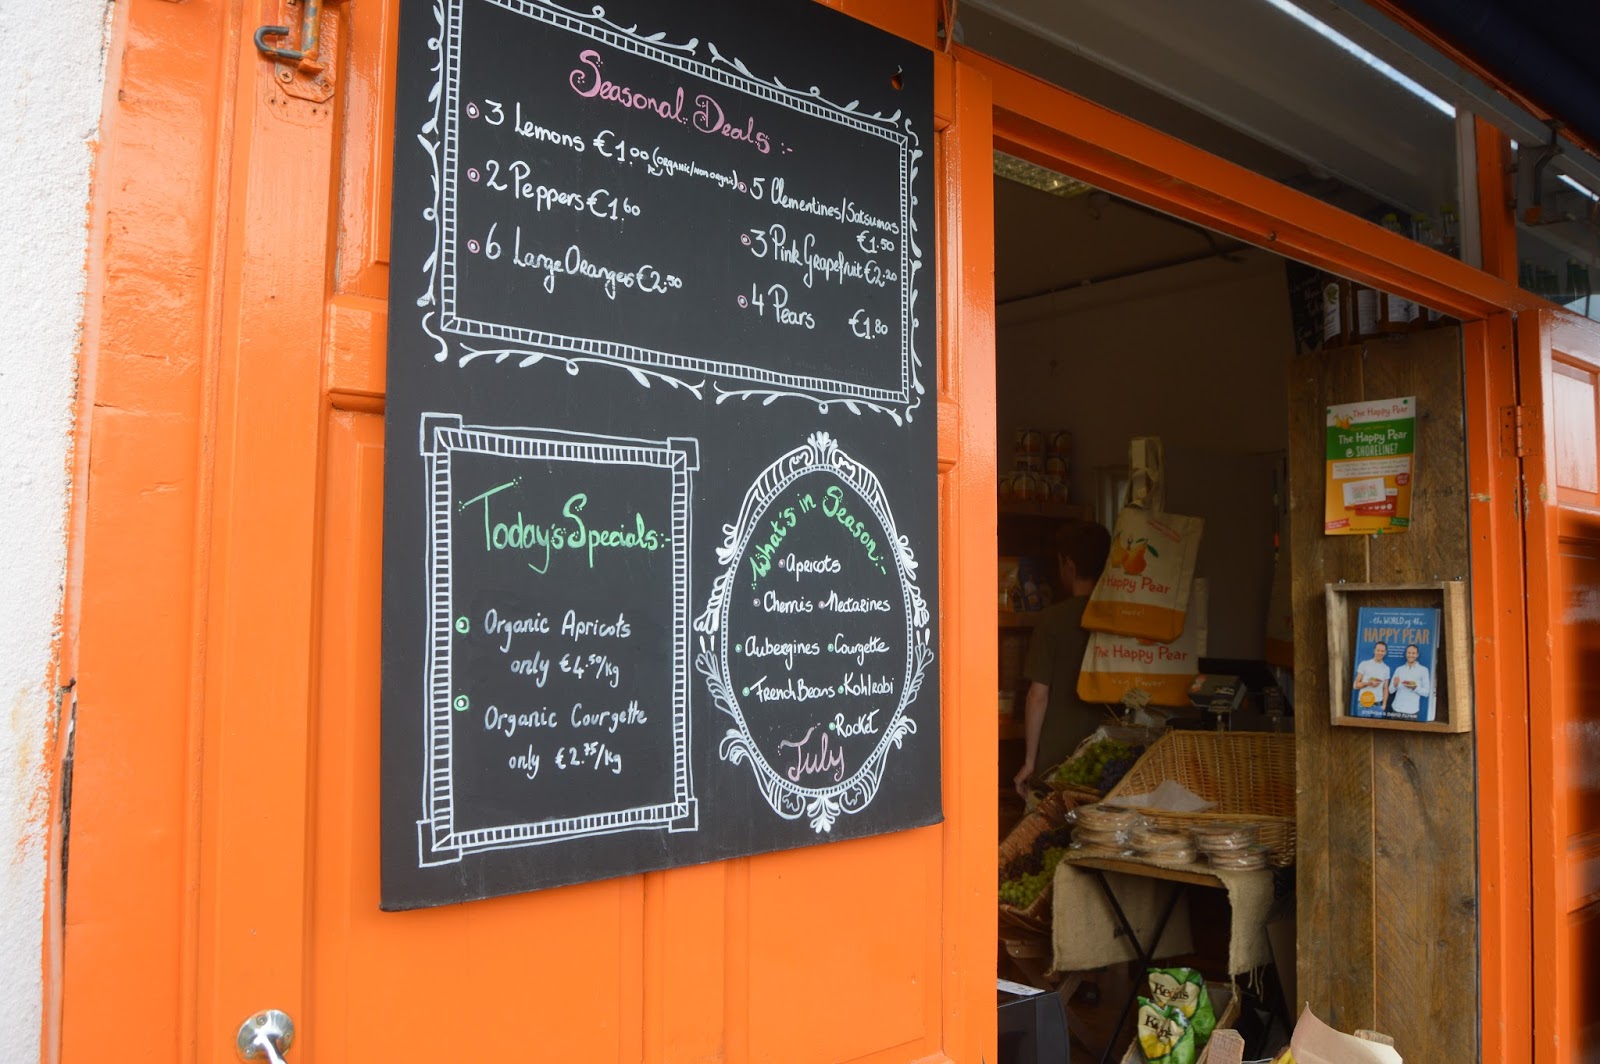 Seasonal Deals:-
3 Lemons €1.00 (ORGANIC/NON ORGNIC)
2 Peppers €1.60
6 Large Oranges €2.50
5 Clementines/Satsumas
€1.50
3 Pink Grapefruit €2.20
4 Pears €1.80
Today's Specials:-
Organic Apricots
only €4.50/kg
Organic Courgette
only €2.75/kg
What's in Season:-
Apricots
Cherris Nectarines
Aubergines Courgette
French Beans Kohlrabi
Rocket
July
The Happy Pear
The Happy Pear
@ SHORELINE?
the WORLD of the
HAPPY PEAR
Happy Pear
The Happy Pear